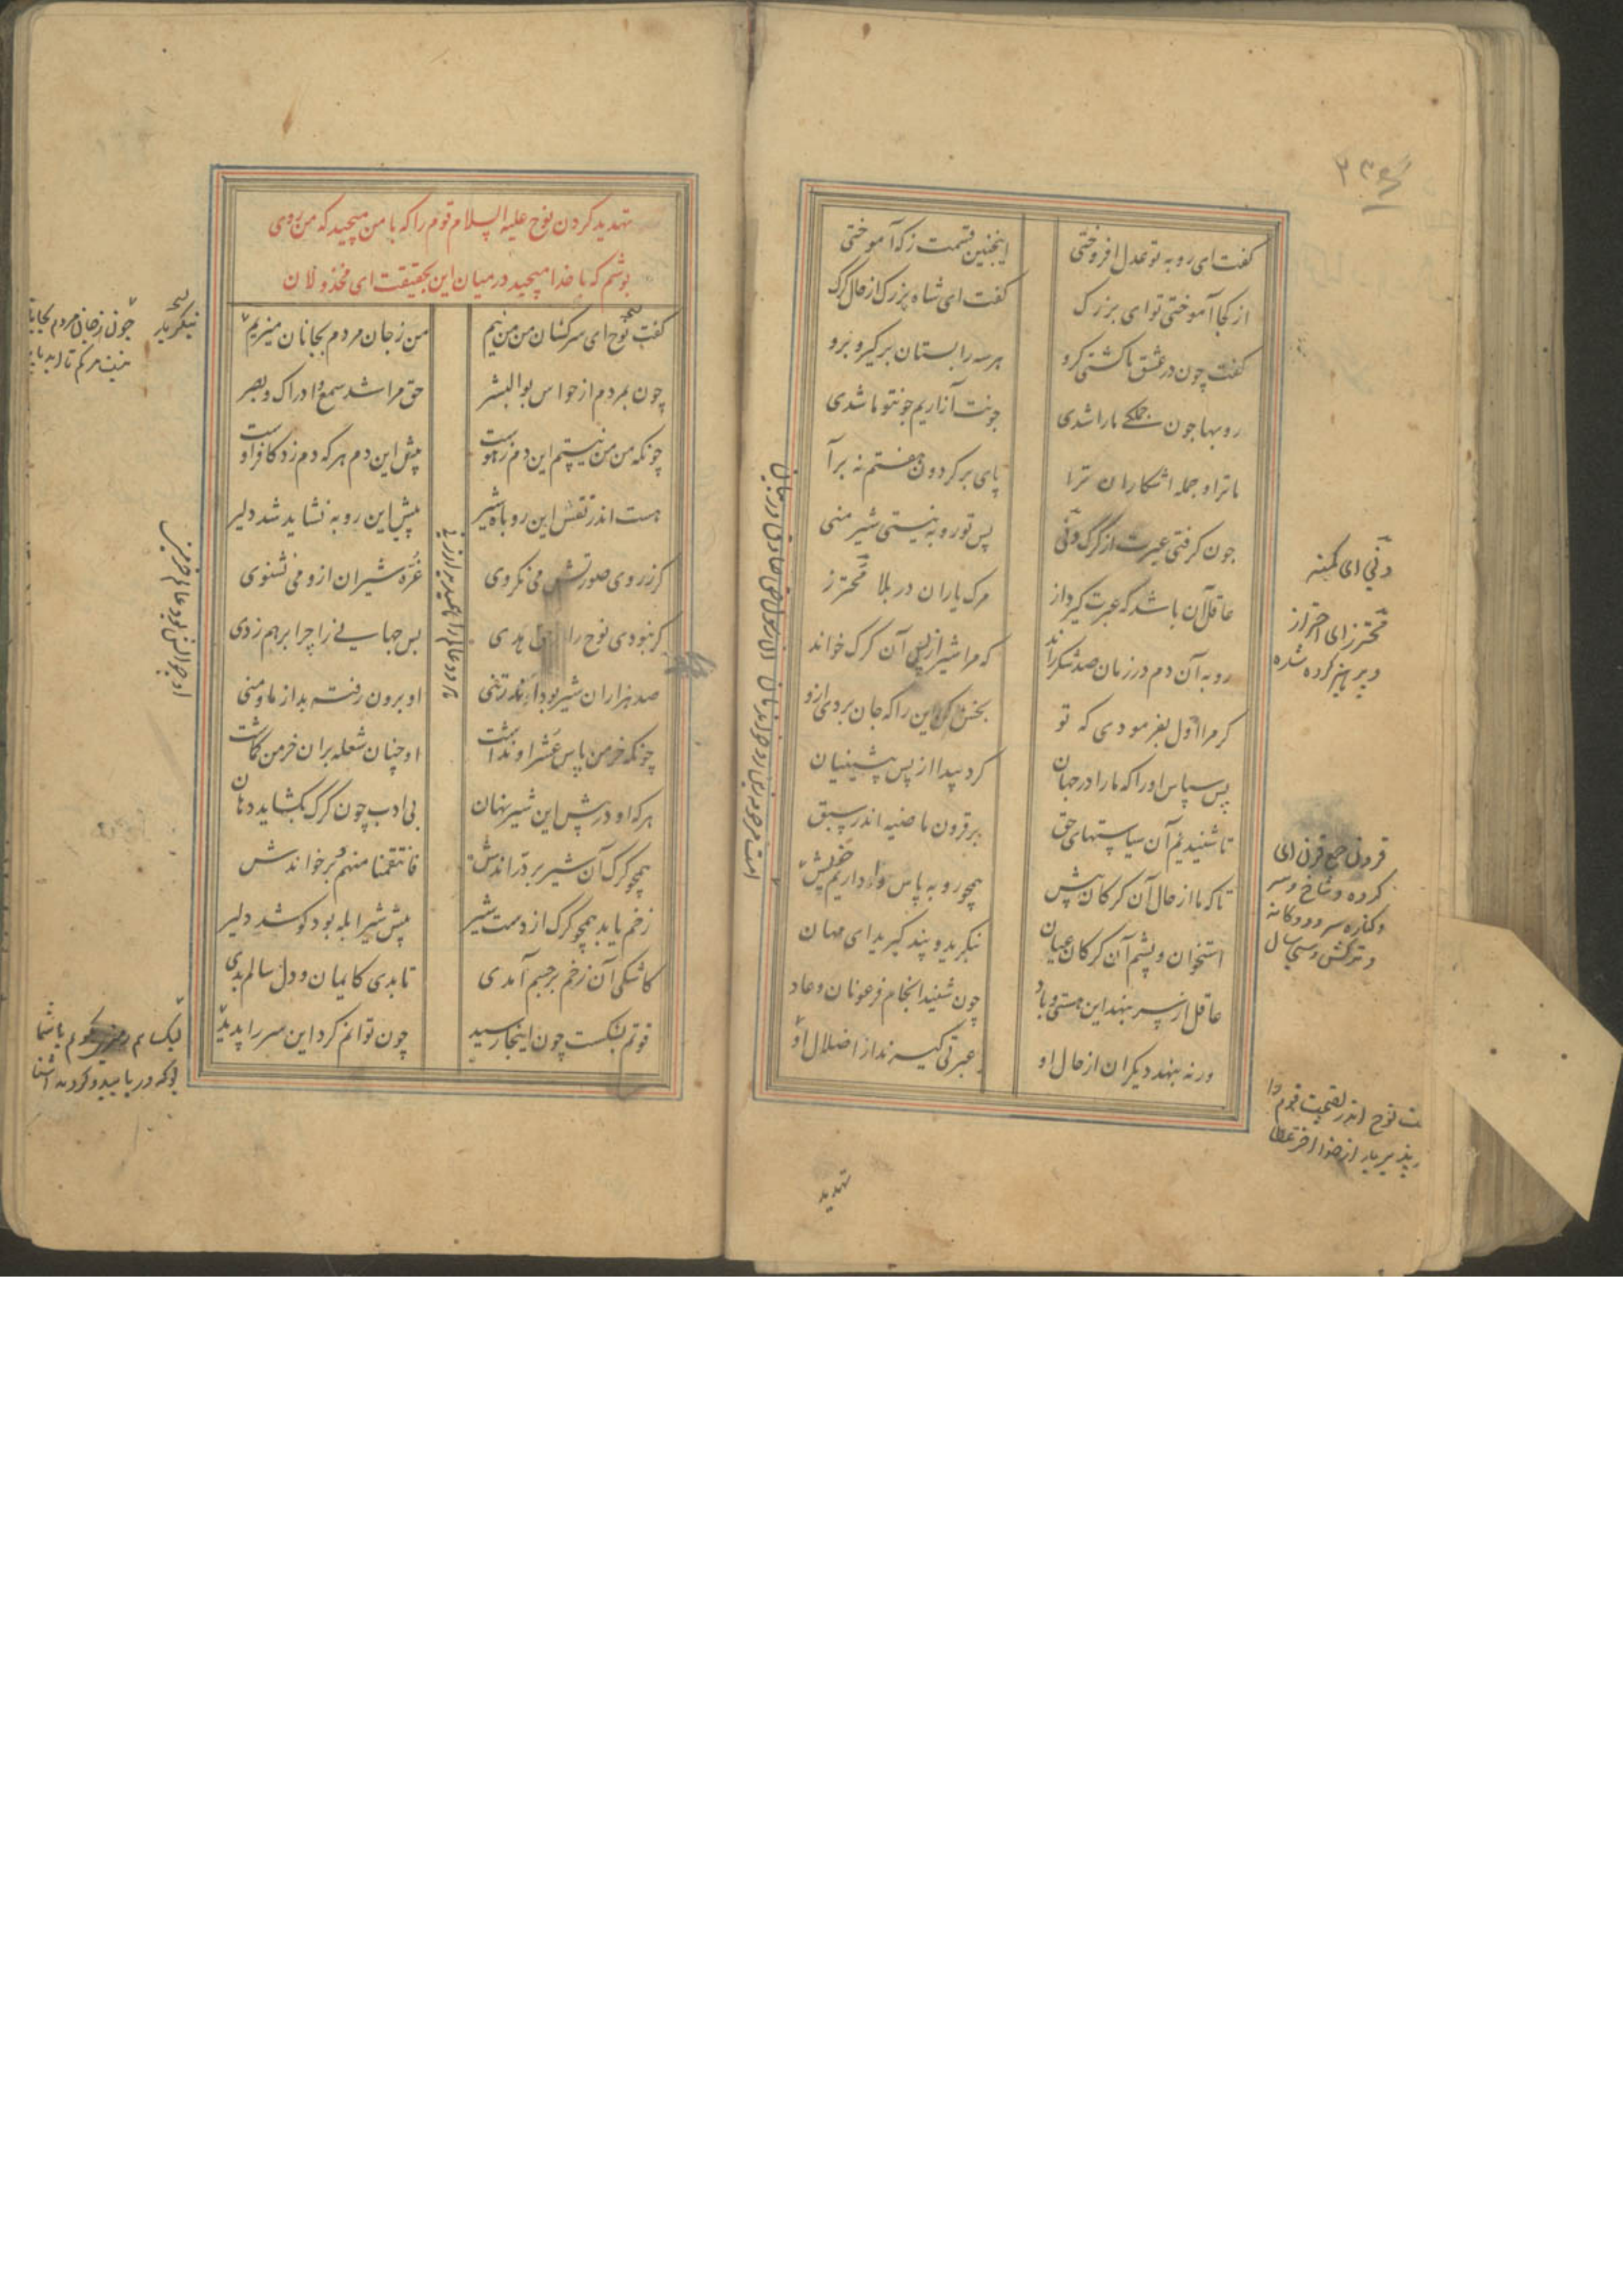 گفت ای روبه تو عدل افروختی
اینچنین قسمت ز که آموختی
از کجا آموختی تو ای بزرگ
گفت ای شاه بزرگ از حال گرگ
گفت چون در عشق ما گشتی گرو
هر سه را بستان برگیر و برو
روبها چون جملگی ما را شدی
چونت آزاریم چون تو ما شدی
ما ترا و جمله اشکاران ترا
پای بر گردون هفتم نه برآ
چون گرفتی عبرت از گرگ دنی
پس تو روبه نیستی شیر منی
عاقل آن باشد که عبرت گیرد از
مرگ یاران در بلا محترز
روبه آن دم در زمان صد شکر راند
که مرا شیر از پس آن گرگ خواند
گر مرا اول بفرمودی که تو
بخش کن این را که جان بردی ازو
پس سپاس او را که ما را در جهان
کرد پیدا از پس پیشینیان
تا شنیدیم آن سیاستهای حق
بر قرون ماضیه اندر سبق
تا که ما از حال آن گرگان پیش
همچو روبه پاس خود داریم بیش
استخوان و پشم آن گرگان عیان
بنگرید و پند گیرید ای مهان
عاقل از سر بنهد این هستی و باد
چون شنید انجام فرعونان و عاد
ور نه بنهد دیگران از حال او
عبرتی گیرند از اضلال او
دنی ای کمینه
محترز ای احتراز
و پرهیز کرده شده
قرون جمع قرن ای
تهدید
تهدید کردن نوح علیه السلام قوم را که با من مپیچید که من روی
پوشم که با خدا مپیچید در میان این بحقیقت ای مخذولان
گفت نوح ای سرکشان من من نیم
من ز جان مردم بجانان میزیم
چون بمردم از حواس بوالبشر
حق مرا شد سمع و ادراک و بصر
چونکه من من نیستم این دم ز هوست
پیش این دم هر که دم زد کافر اوست
هست اندر نقش این روباه شیر
پیش این روبه نشاید شد دلیر
گر ز روی صورتش می نگروی
غرهٔ شیران ازو می نشنوی
گر نبودی نوح را
پس جهانی را چرا برهم زدی
صد هزاران شیر بود اندر تنی
او برون رفته بد از ما و منی
چونکه خرمن پاس عشر او نداشت
او چنان شعله بران خرمن گماشت
هر که او در پیش این شیر نهان
بی ادب چون گرگ بگشاید دهان
همچو گرگ آن شیر بر دراندش
فانتقمنا منهم بر خواندش
زخم یابد همچو گرگ از دست شیر
پیش شیر ابله بود کو شد دلیر
کاشکی آن زخم بر جسم آمدی
تا بدی کایمان و دل سالم بدی
قوتم بشکست چون اینجا رسید
چون توانم کرد این سر را پدید